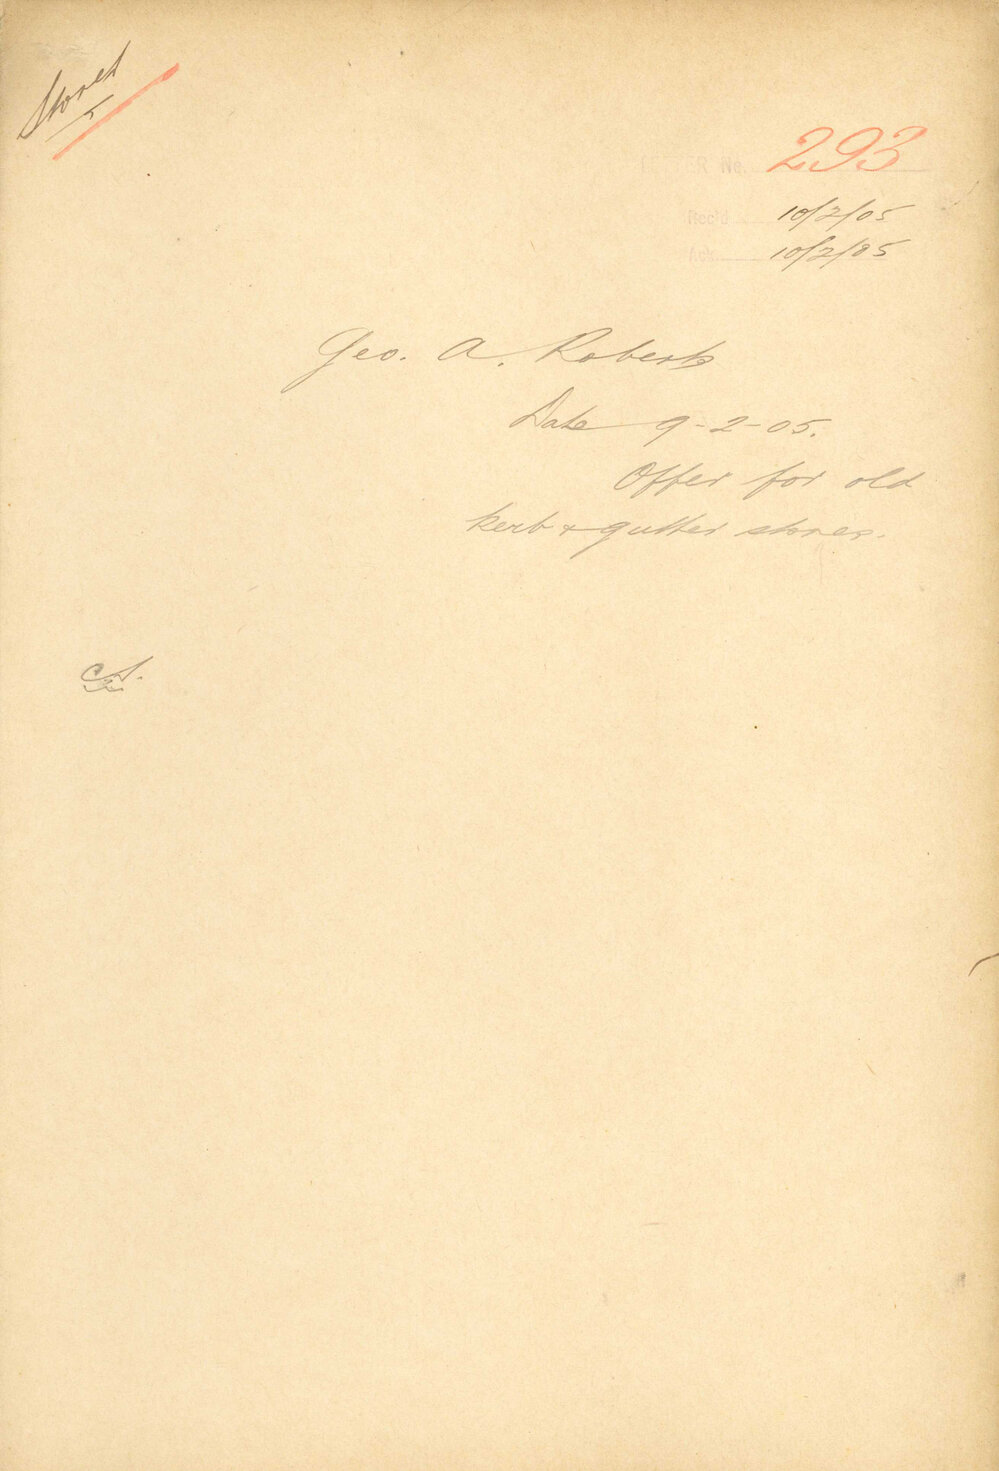 LETTER No. 293
Rec'd 10/2/05
Ack 10/2/05
Geo. A. Roberts
Date 9-2-05.
Offer for old
kerb & gutter stones.